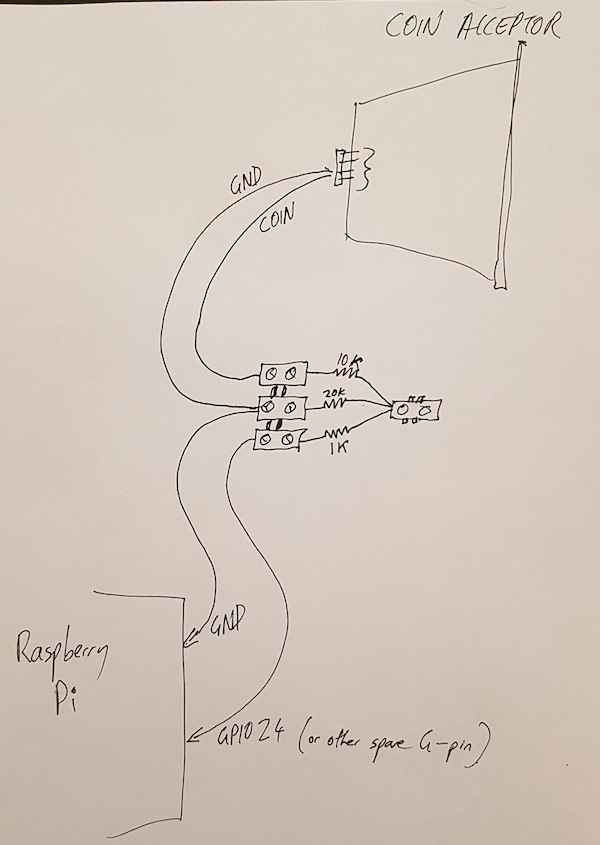 COIN ACCEPTOR
GND
COIN
10K
20K
1K
GND
Raspberry
Pi
GPIO24 (or other spare G-pin)